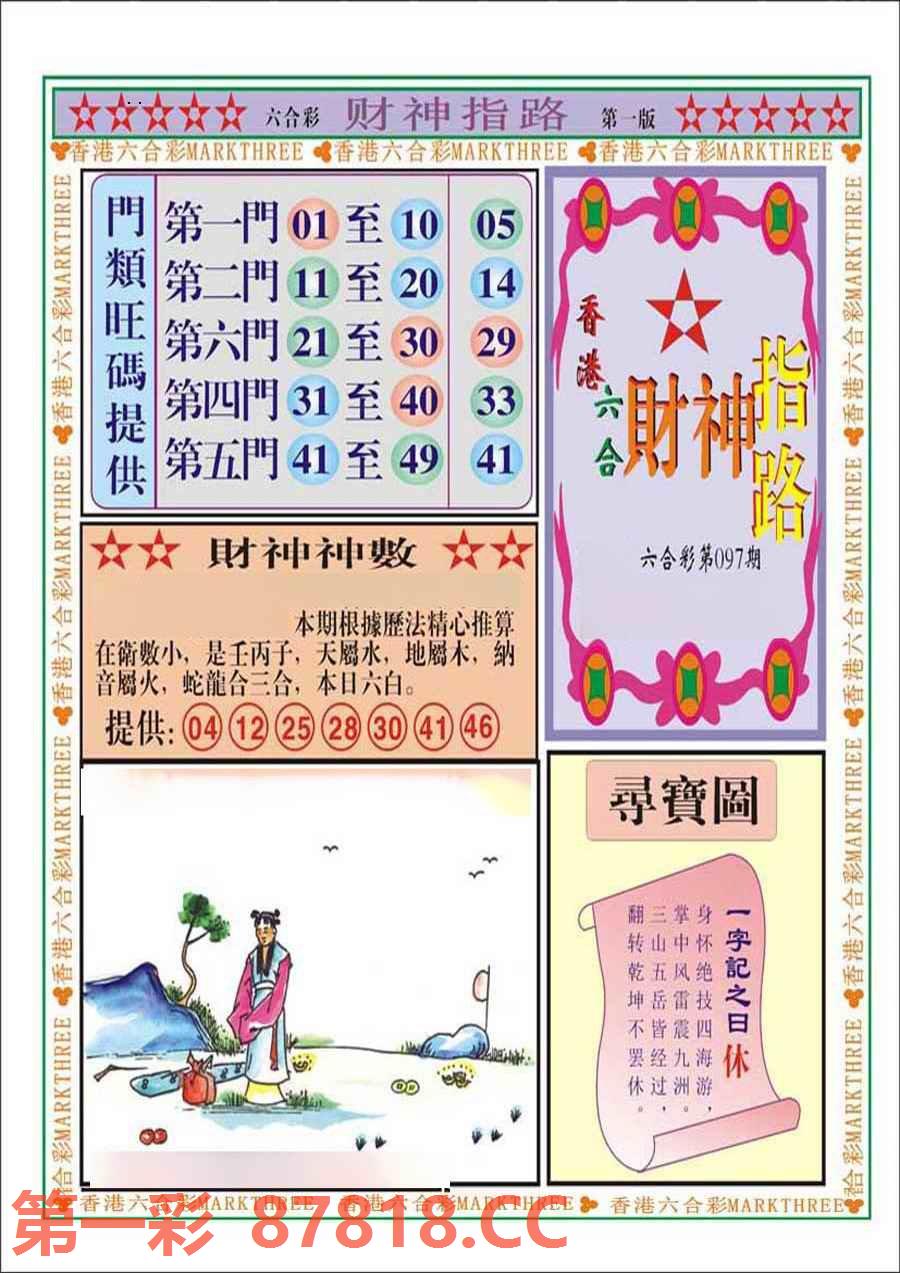 六合彩 财神指路 第一版
香港六合彩MARKTHREE 香港六合彩MARKTHREE 香港六合彩MARKTHREE
門類旺碼提供
第一門 01 至 10 05
第二門 11 至 20 14
第六門 21 至 30 29
第四門 31 至 40 33
第五門 41 至 49 41
香港六合
財神指路
六合彩第097期
財神神數
本期根據歷法精心推算
在衛數小，是壬丙子，天屬水，地屬木，納
音屬火，蛇龍合三合，本日六白。
提供: 04 12 25 28 30 41 46
尋寶圖
一字記之曰休
身怀绝技四海游，
掌中风雷震九洲。
三山五岳皆经过，
翻转乾坤不罢休。
香港六合彩MARKTHREE 香港六合彩MARKTHREE 香港六合彩MARKTHREE
香港六合彩MARKTHREE 香港六合彩MARKTHREE 香港六合彩MARKTHREE 合彩MARKTHREE
香港六合彩MARKTHREE 香港六合彩MARKTHREE 香港六合彩MARKTHREE 合彩MARKTHREE
第一彩 87818.CC